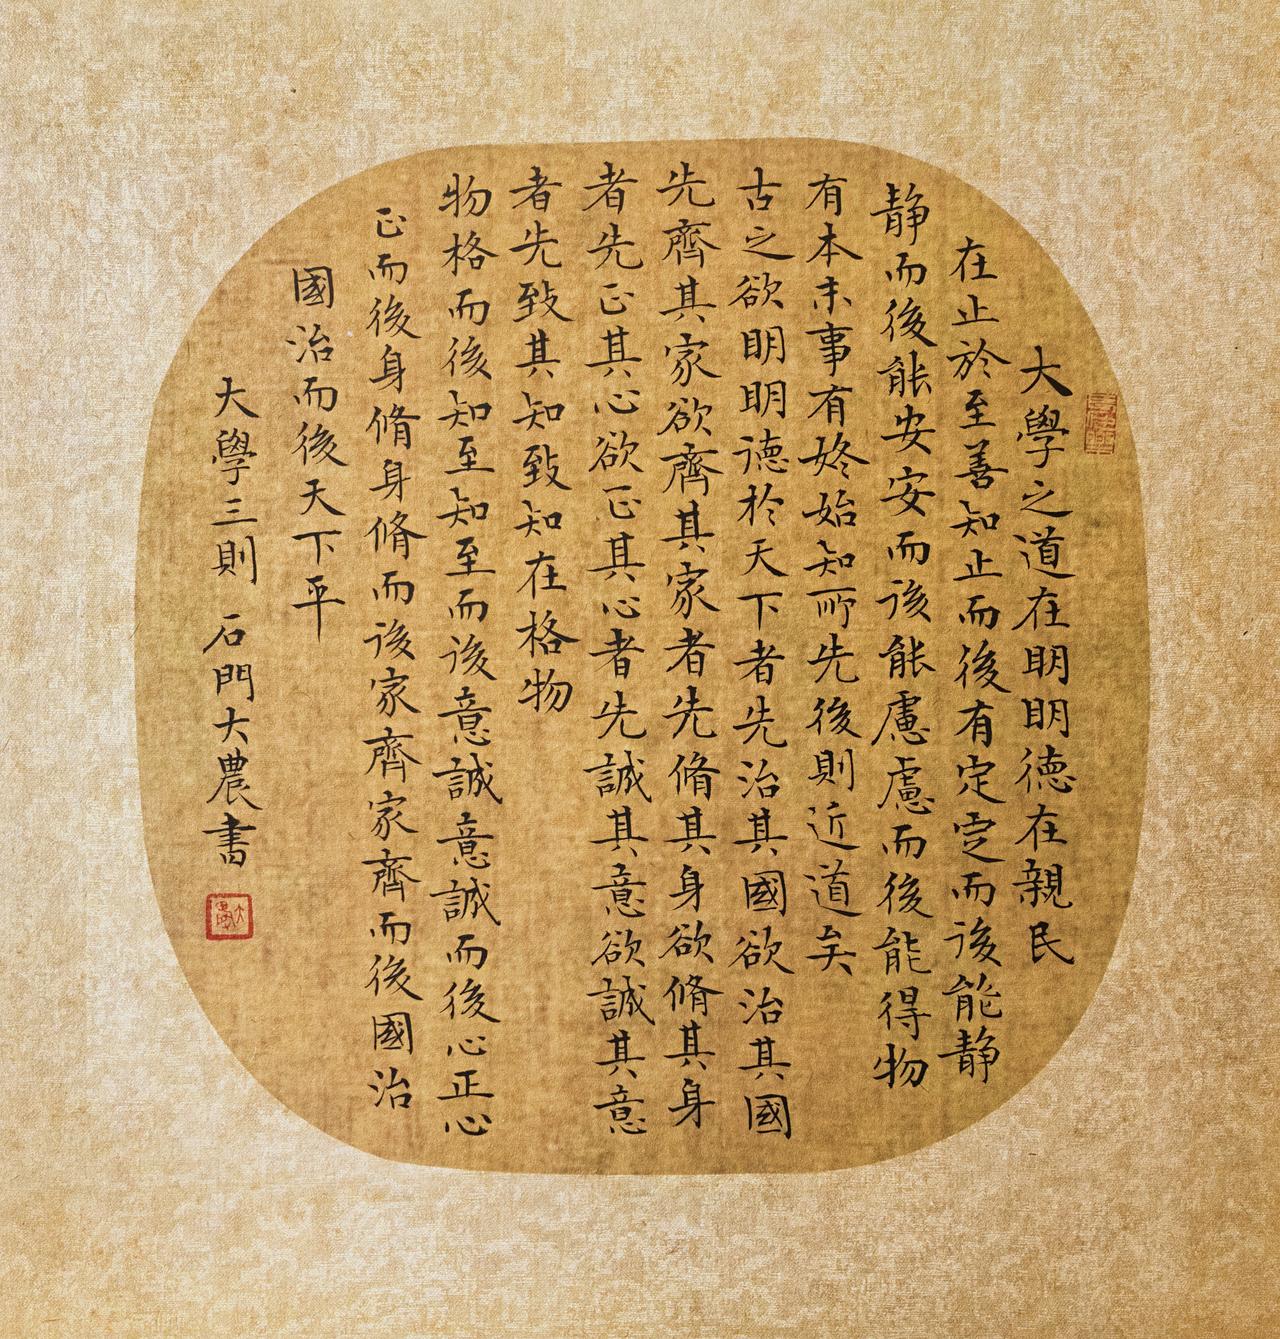 大學之道在明明德在親民
在止於至善知止而後有定定而後能静
静而後能安安而後能慮慮而後能得物
有本末事有終始知所先後則近道矣
古之欲明明德於天下者先治其國欲治其國
先齊其家欲齊其家者先脩其身欲脩其身
者先正其心欲正其心者先誠其意欲誠其意
者先致其知致知在格物
物格而後知至知至而後意誠意誠而後心正心
正而後身脩身脩而後家齊家齊而後國治
國治而後天下平
大學三則 石門大農書